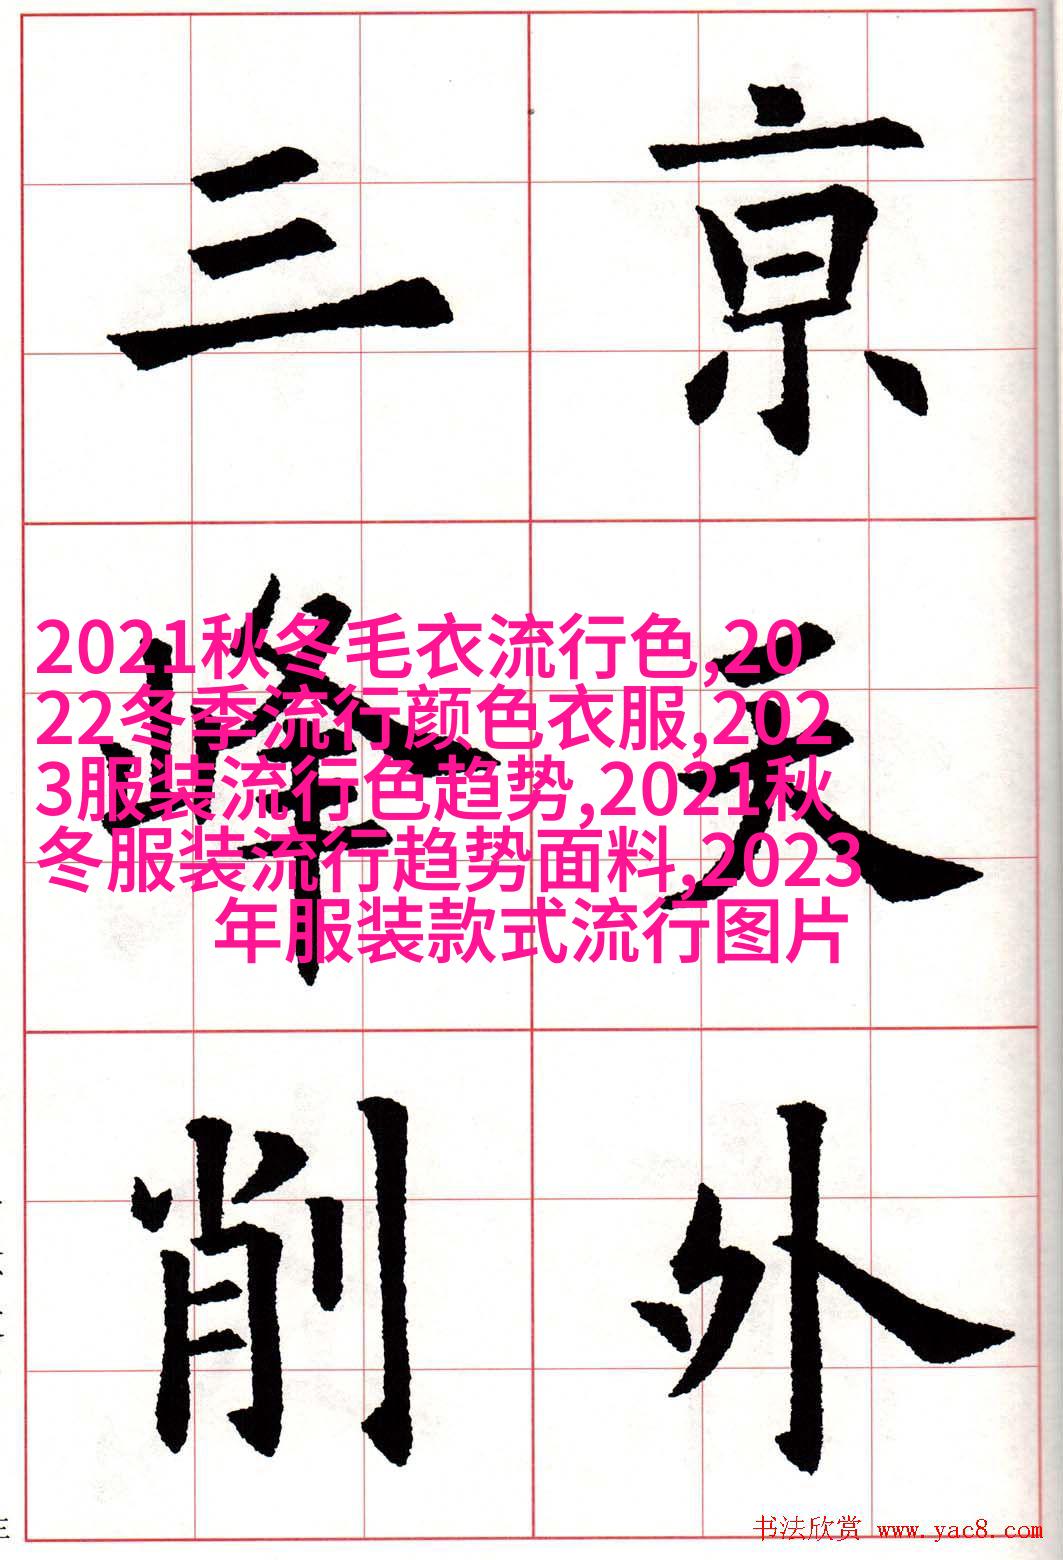 亰天外
三峰削
2021秋冬毛衣流行色,20
22冬季流行颜色衣服,202
3服装流行色趋势,2021秋
冬服装流行趋势面料,2023
年服装款式流行图片
书法欣赏 www.yac8.com